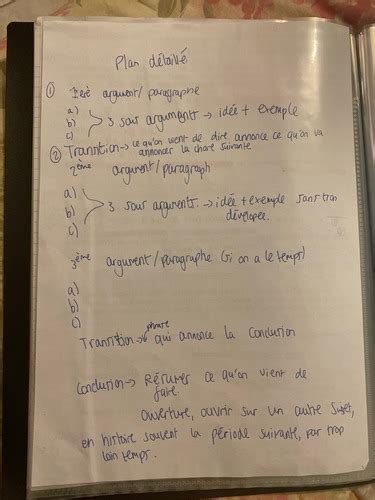 Plan détaillé
① 1erè argument/paragraphe
a)
b) > 3 sous arguments → idée + exemple
c)
② Transition → ce qu'on vient de dire annonce ce qu'on va
annoncer la chose suivante
2ème argument/paragraph
a)
b) > 3 sous arguments → idée + exemple sans trop
développée.
c)
3ème argument/paragraphe (si on a le temps)
a)
b)
c)
Transition → phrase qui annonce la conclusion
Conclusion → Résumer ce qu'on vient de
faire
ouverture, ouvrir sur un autre sujet,
en histoire souvent la période suivante, pas trop
loin temps.